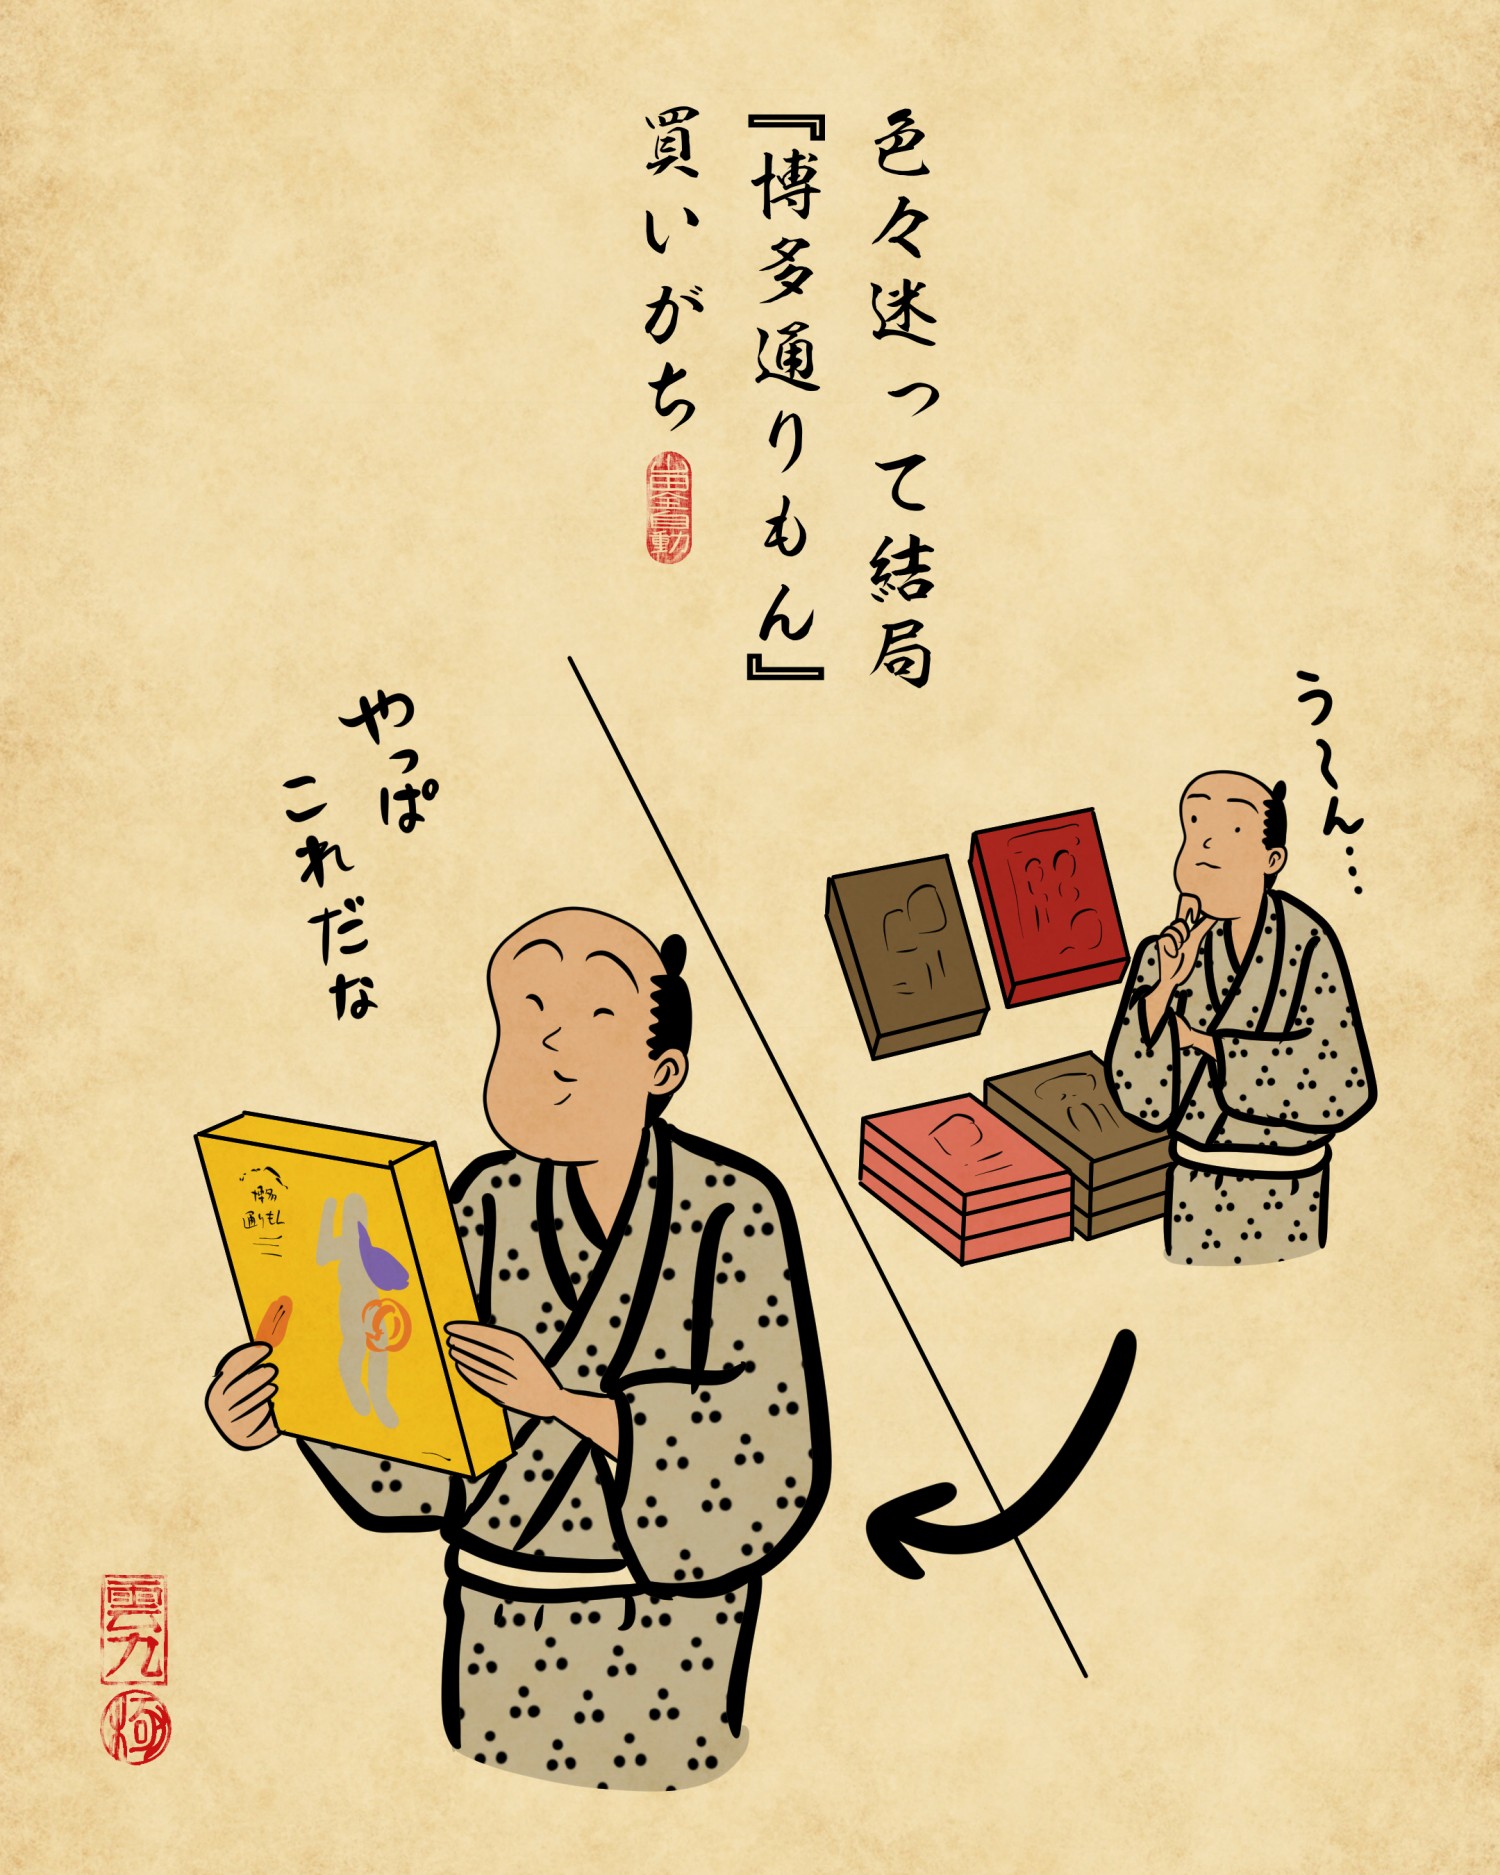 色々迷って結局
『博多通りもん』
買いがち
う〜ん…
やっぱ
これだな
博多
通りもん
雲九
極